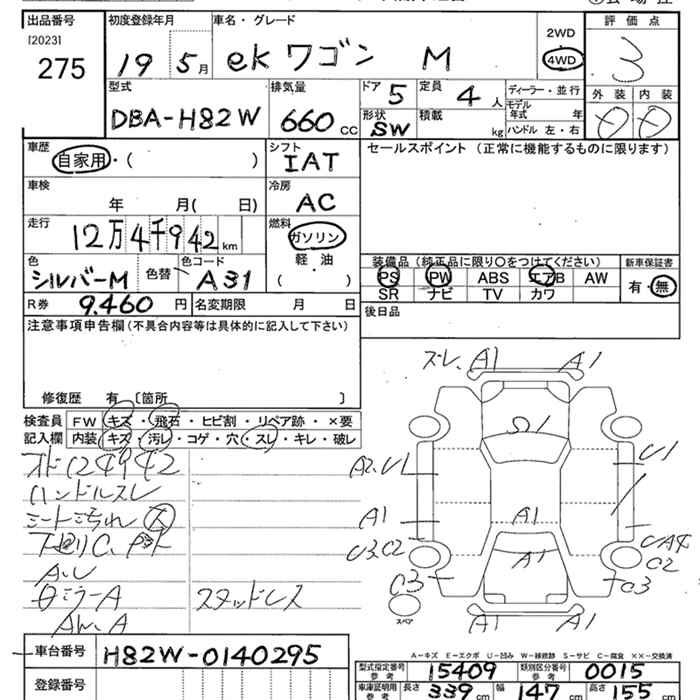 出品番号 初度登録年月 車名・グレード 評価点
[2023]
275 19 5月 ekワゴン M 2WD 4WD 3
型式 排気量 ドア 5 定員 4人 ディーラー・並行 外装 内装
DBA-H82W 660CC 形状 SW 積載 kg モデル年式 年
ハンドル 左・右
車歴 自家用・( ) シフト IAT セールスポイント (正常に機能するものに限ります)
車検 年 月( 日) 冷房 AC
走行 12万4千942km 燃料 ガソリン
軽・油
( )
色 シルバーM 色替 色コード A31 装備品(純正品に限り○をつけてください) 新車保証書
PS PW ABS エアB AW 有・無
SR ナビ TV カワ
R券 9,460円 名変期限 月 日 後日品
注意事項申告欄(不具合内容等は具体的に記入して下さい)
修復歴 有 〔箇所 〕
検査員 FW キズ・飛石・ヒビ割・リペア跡・×要
記入欄 内装 キズ・汚レ・コゲ・穴・スレ・キレ・破レ
ハンドルスレ
シート汚れ 大
A、U
スタッドレス
ズレ、A1 A1
A2、U1 U1
A1 A1
U3、C2 A1 C2
C3 C3
スペア A1 A1
A-キズ E-エクボ U-凹み W-修繕跡 S-サビ C-腐食 ××-交換済
車台番号 H82W-0140295
型式指定番号 参考 15409 類別区分番号 参考 0015
登録番号 車庫証明用 参考 長さ 339cm 幅 147cm 高さ 155cm